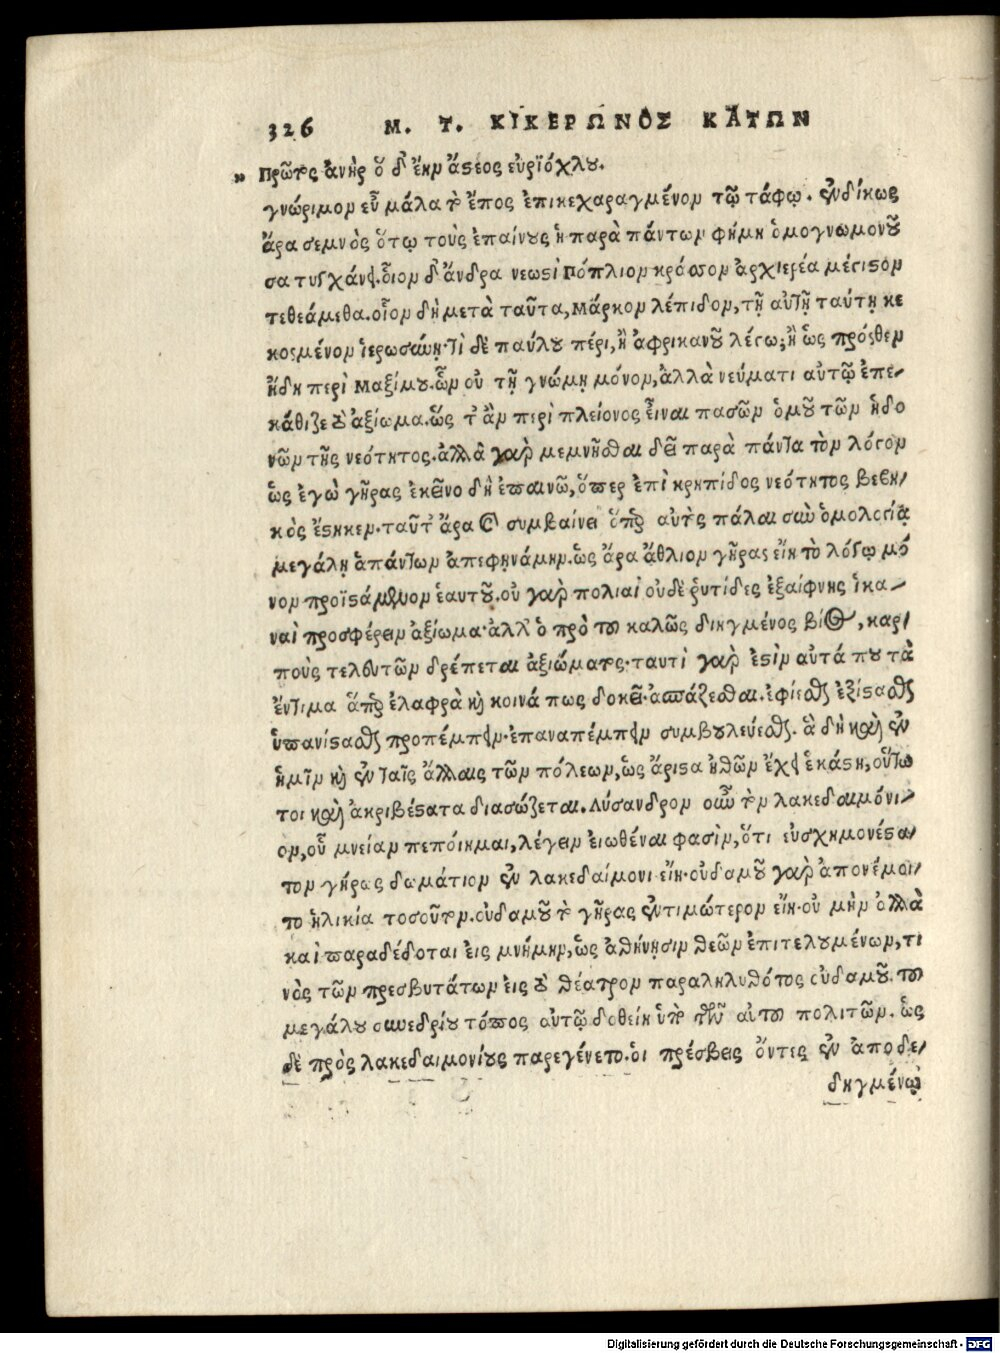 326 Μ. Τ. ΚΙΚΕΡΩΝΟΣ ΚΑΤΩΝ
» Πρῶτος ἀνὴρ ὅ δ' ἔην ἄστεος εὐρϊόχλου.
γνώριμον εὖ μάλα τὸ ἔπος ἐπικεχαραγμένον τῷ τάφῳ. ἐνδίκως
ἄρα σεμνὸς ὅτῳ τοὺς ἐπαίνους ἡ παρὰ πάντων φήμη ὁμογνωμονοῦ
σα τυγχάνει. οἷον δ' ἄνδρα νεωστὶ Πόπλιον κράσσον ἀρχιερέα μέγιστον
τεθεάμεθα. οἷον δὴ μετὰ ταῦτα, Μάρκον λέπιδον, τῇ αὐτῇ ταύτῃ κε
κοσμένον ἱερωσύνῃ. τί δὲ παύλου πέρι, ἢ ἀφρικανοῦ λέγω; ἢ ὡς πρόσθεν
ἤδη περὶ Μαξίμου. ὧν οὐ τῇ γνώμῃ μόνον, ἀλλὰ νεύματι αὐτῷ ἐπε-
κάθιζε τὸ ἀξίωμα. ὥς τ' ἂν περὶ πλείονος εἶναι πασῶν ὁμοῦ τῶν ἡδο
νῶν τῆς νεότητος. ἀλλὰ γὰρ μεμνῆσθαι δεῖ παρὰ πάντα τὸν λόγον
ὡς ἐγὼ γῆρας ἐκεῖνο δὴ ἐπαινῶ, ὅπερ ἐπὶ κρηπίδος νεότητος βεβη-
κὸς ἕστηκεν. ταῦτ' ἄρα καὶ συμβαίνει ὅπερ αὐτὸς πάλαι σὺν ὁμολογίᾳ
μεγάλῃ ἁπάντων ἀπεφηνάμην. ὡς ἄρα ἄθλιον γῆρας εἴη τὸ λόγῳ μό
νον προϊστάμενον ἑαυτοῦ. οὐ γὰρ πολιαὶ οὐδὲ ῥυτίδες ἐξαίφνης ἱκα-
ναὶ προσφέρειν ἀξίωμα. ἀλλ' ὁ πρὸ τοῦ καλῶς διηγμένος βίος, καρ-
ποὺς τελευτῶν δρέπεται ἀξιώματος. ταυτὶ γὰρ ἐστὶν αὐτά που τὰ
ἔντιμα ἅπερ ἐλαφρὰ καὶ κοινά πως δοκεῖ. ἀσπάζεσθαι. ἐφίεσθαι ἐξίστασθαι
ὑπανίστασθαι προπέμπειν. ἐπαναπέμπειν συμβουλεύεσθαι. ἃ δὴ καὶ ἐν
ἡμῖν καὶ ἐν ταῖς ἄλλαις τῶν πόλεων, ὡς ἄριστα ἠθῶν ἔχει ἑκάστη, οὕτω
τοι καὶ ἀκριβέστατα διασώζεται. Λύσανδρον οὖν τὸν λακεδαιμόνι-
ον, οὗ μνείαν πεποίημαι, λέγειν εἰωθέναι φασὶν, ὅτι εὐσχημονέστα-
τον γήρως δωμάτιον ἐν λακεδαίμονι εἴη. οὐδαμοῦ γὰρ ἀπονέμοι-
το ἡλικία τοσοῦτον. οὐδαμοῦ τὸ γῆρας ἐντιμώτερον εἴη. οὐ μὴν ἀλλὰ
καὶ παραδέδοται εἰς μνήμην, ὡς ἀθήνησιν θεῶν ἐπιτελουμένων, τι
νὸς τῶν πρεσβυτάτων εἰς τὸ θέατρον παραληλυθότος οὐδαμοῦ. τοῦ
μεγάλου συνεδρίου τόπος αὐτῷ δοθείη ὑπὸ τῶν αὐτοῦ πολιτῶν. ὡς
δὲ πρὸς λακεδαιμονίους παρεγένετο. οἱ πρέσβεις ὄντες ἐν ἀποδε-
δηγμένῳ
Digitalisierung gefördert durch die Deutsche Forschungsgemeinschaft - DFG